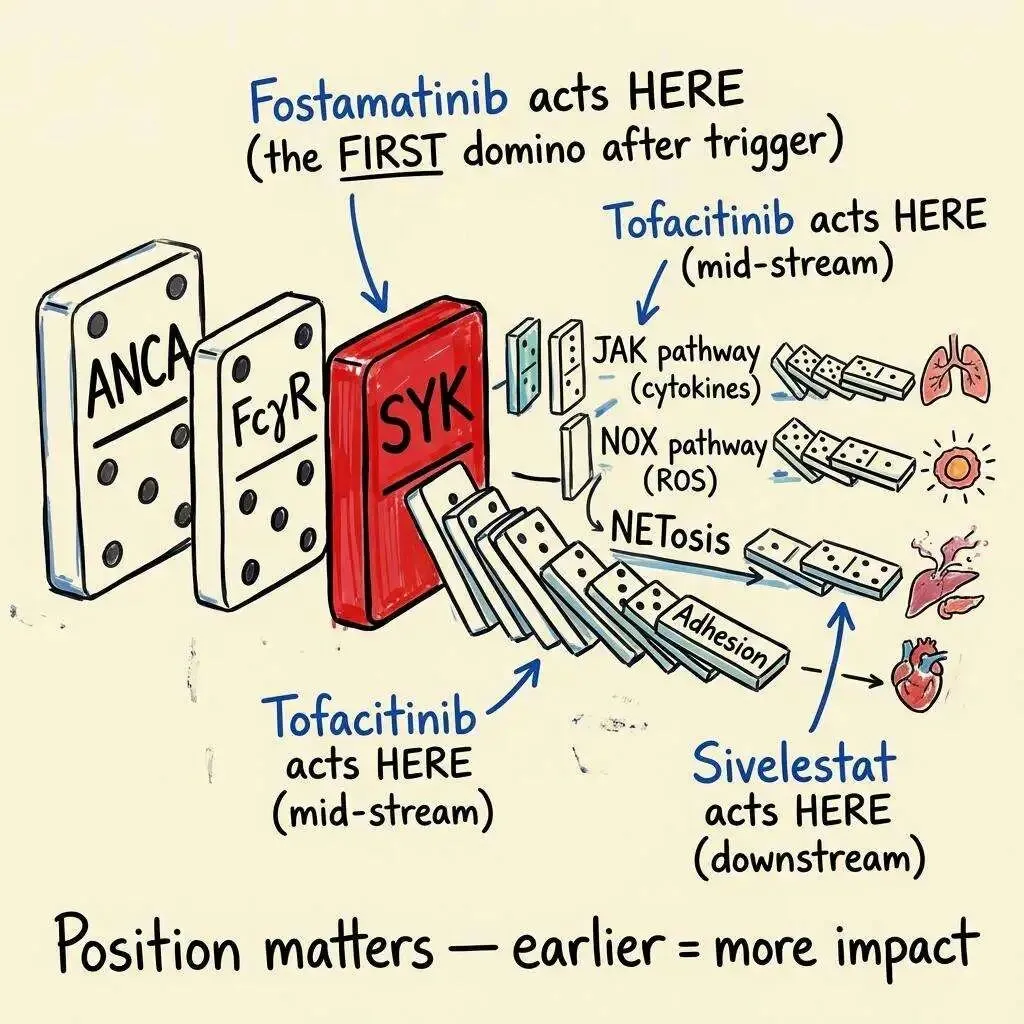 Fostamatinib acts HERE
(the FIRST domino after trigger)
Tofacitinib acts HERE
(mid-stream)
ANCA
FcγR
SYK
JAK pathway
(cytokines)
NOX pathway
(ROS)
NETosis
Adhesion
Tofacitinib
acts HERE
(mid-stream)
Sivelestat
acts HERE
(downstream)
Position matters — earlier = more impact